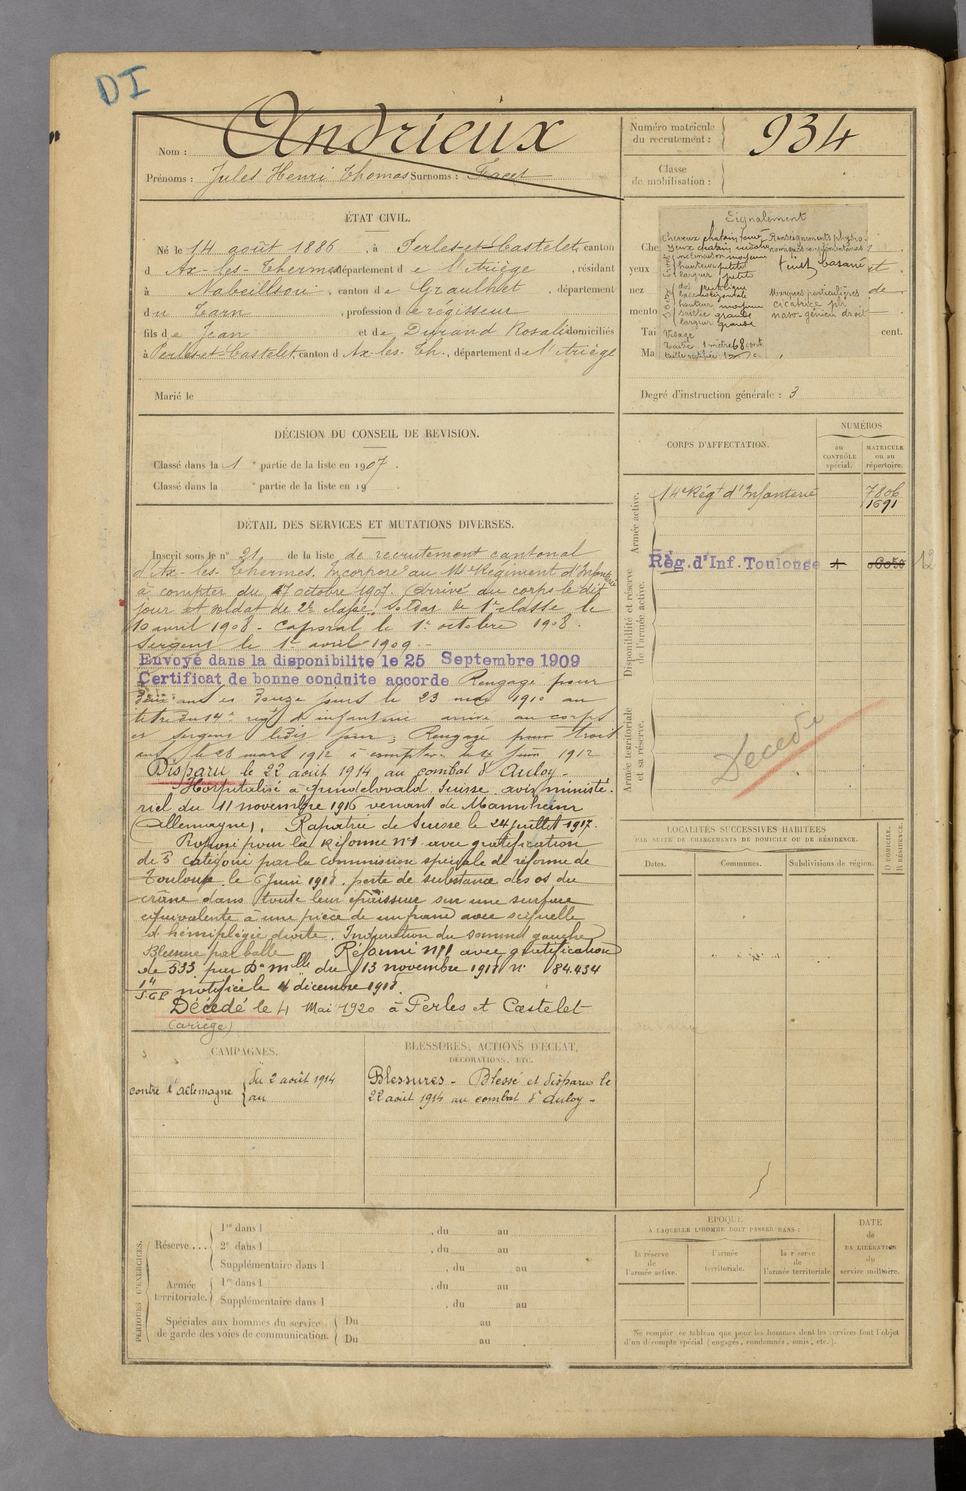 DI
Nom : Andrieux
Numéro matricule du recrutement : 934
Prénoms : Jules Henri Thomas Surnoms :
Classe de mobilisation :
ÉTAT CIVIL.
Né le 14 août 1886, à Perles-et-Castelet, canton
d Ax-les-Thermes, département de l'Ariège, résidant
à, canton de Graulhet, département
du Tarn, profession de régisseur
fils de Jean et de Durand Rosalie domiciliés
à Perles-et-Castelet, canton d'Ax-les-Th., département de l'Ariège
Marié le
Signalement
Cheveux chatain
Yeux chatain
Renseignements physio-
nomiques complémentaires
inclinaison moyenne
hauteur petite
largeur petite
teint basané
dos
base horizontale
hauteur moyenne
saillie grande
largeur grande
Marques particulières
cicatrice
naso-génien droit
Visage
Taille 1 mètre 68 cent
Taille rectifiée 1 m c.
Degré d'instruction générale : 3
DÉCISION DU CONSEIL DE REVISION.
Classé dans la 1e partie de la liste en 1907.
Classé dans la e partie de la liste en 19
CORPS D'AFFECTATION.
NUMÉROS
au CONTRÔLE spécial.
MATRICULE ou au répertoire.
Armée active.
14e Régt d'Infanterie
7806
1691
Disponibilité et réserve de l'armée active.
Rég. d'Inf. Toulouse
12
Armée territoriale et sa réserve.
Décédé
DÉTAIL DES SERVICES ET MUTATIONS DIVERSES.
Inscrit sous le n° 21 de la liste de recrutement cantonal
d'Ax-les-Thermes. Incorporé au 14e Régiment d'Infanterie
à compter du 7 octobre 1907. Arrivé au corps le dit
jour et soldat de 2e classe. Soldat de 1e classe le
10 avril 1908. Caporal le 1er octobre 1908.
Sergent le 1er avril 1909.
Envoyé dans la disponibilite le 25 Septembre 1909
Certificat de bonne conduite accorde Rengagé pour
deux ans et douze jours le 23 mai 1910 au
titre du 14e régt d'infanterie arrivé au corps
et sergent le dit jour; Rengagé pour trois
ans le 28 mars 1912 à compter du 4 Juin 1912
Disparu le 22 août 1914 au combat d'Anloy -
Hospitalisé à Grindelwald, Suisse, avis ministé-
riel du 11 novembre 1916 venant de Mannheim
(Allemagne). Rapatrié de Suisse le 24 juillet 1917.
Proposé pour la Réforme n°1 avec gratification
de 5e catégorie par la commission spéciale de réforme de
Toulouse le 6 juin 1918. perte de substance des os du
crâne dans toute leur épaisseur sur une surface
équivalente à une pièce de un franc avec séquelle
d'hémiplégie droite. Induration du sommet gauche
Blessure par balle Réformé n°1 avec gratification
de 533 par Don mlle du 13 novembre 1918 n° 84.434
notifiée le 4 décembre 1918.
Décédé le 4 Mai 1920 à Perles et Castelet
(Ariège)
LOCALITÉS SUCCESSIVES HABITÉES
PAR SUITE DE CHANGEMENTS DE DOMICILE OU DE RÉSIDENCE.
Dates.
Communes.
Subdivisions de région.
D DOMICILE.
R RÉSIDENCE.
CAMPAGNES.
contre l'Allemagne
du 2 août 1914
au
BLESSURES, ACTIONS D'ÉCLAT,
DÉCORATIONS, ETC.
Blessures - Blessé et disparu le
22 août 1914 au combat d'Anloy -
PÉRIODES D'EXERCICES.
Réserve ...
1re dans l , du au
2e dans l , du au
Supplémentaire dans l , du au
Armée territoriale.
1re dans l , du au
Supplémentaire dans l , du au
Spéciales aux hommes du service
de garde des voies de communication.
Du au
Du au
EPOQUE
À LAQUELLE L'HOMME DOIT PASSER DANS :
la réserve de l'armée active.
l'armée territoriale.
la réserve de l'armée territoriale
DATE
de
LA LIBÉRATION
du
service militaire.
Ne remplir ce tableau que pour les hommes dont les services font l'objet
d'un décompte spécial (engagés, condamnés, omis, etc.).